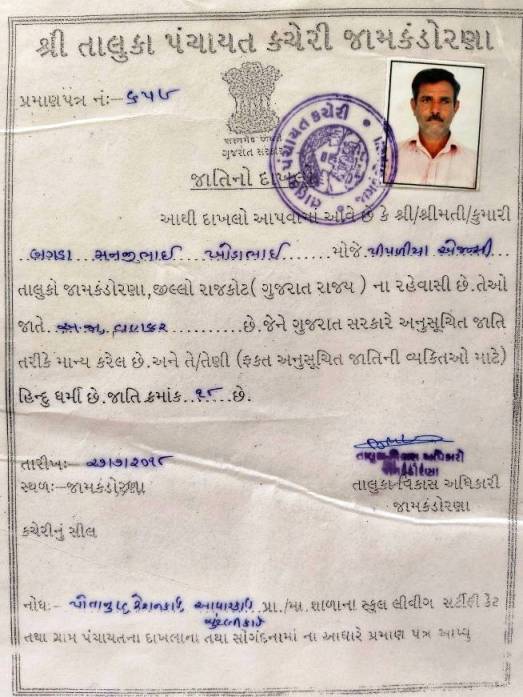 શ્રી તાલુકા પંચાયત કચેરી જામકંડોરણા
પ્રમાણપત્ર નં:- ૬૫૭
સત્યમેવ જયતે
ગુજરાત સરકાર
તાલુકા પંચાયત કચેરી
જાતિનો દાખલો
આથી દાખલો આપવામાં આવે છે કે શ્રી/શ્રીમતી/કુમારી
બગડા મનજીભાઈ ખીડાભાઈ મોજે પીપળીયા એજન્સી
તાલુકો જામકંડોરણા,જીલ્લો રાજકોટ( ગુજરાત રાજ્ય ) ના રહેવાસી છે.તેઓ
જાતે અ.જા. વણકર છે.જેને ગુજરાત સરકારે અનુસૂચિત જાતિ
તરીકે માન્ય કરેલ છે.અને તે/તેણી (ફક્ત અનુસૂચિત જાતિની વ્યક્તિઓ માટે)
હિન્દુ ધર્મી છે.જાતિ ક્રમાંક ૧૮ છે.
તારીખ:- ૨૭/૭/૨૦૧૮
સ્થળ:-જામકંડોરણા
તાલુકા વિકાસ અધિકારી
જામકંડોરણા
તાલુકા-વિકાસ અધિકારી
જામકંડોરણા
કચેરીનું સીલ
નોધ:- પીતાનુ રેશનકાર્ડ આધારકાર્ડ પ્રા./મા.શાળાના સ્કુલ લીવીગ સર્ટીફીકેટ
ચુંટણીકાર્ડ
તથા ગ્રામ પંચાયતના દાખલાના તથા સોગંદનામાં ના આધારે પ્રમાણ પત્ર આપ્યુ